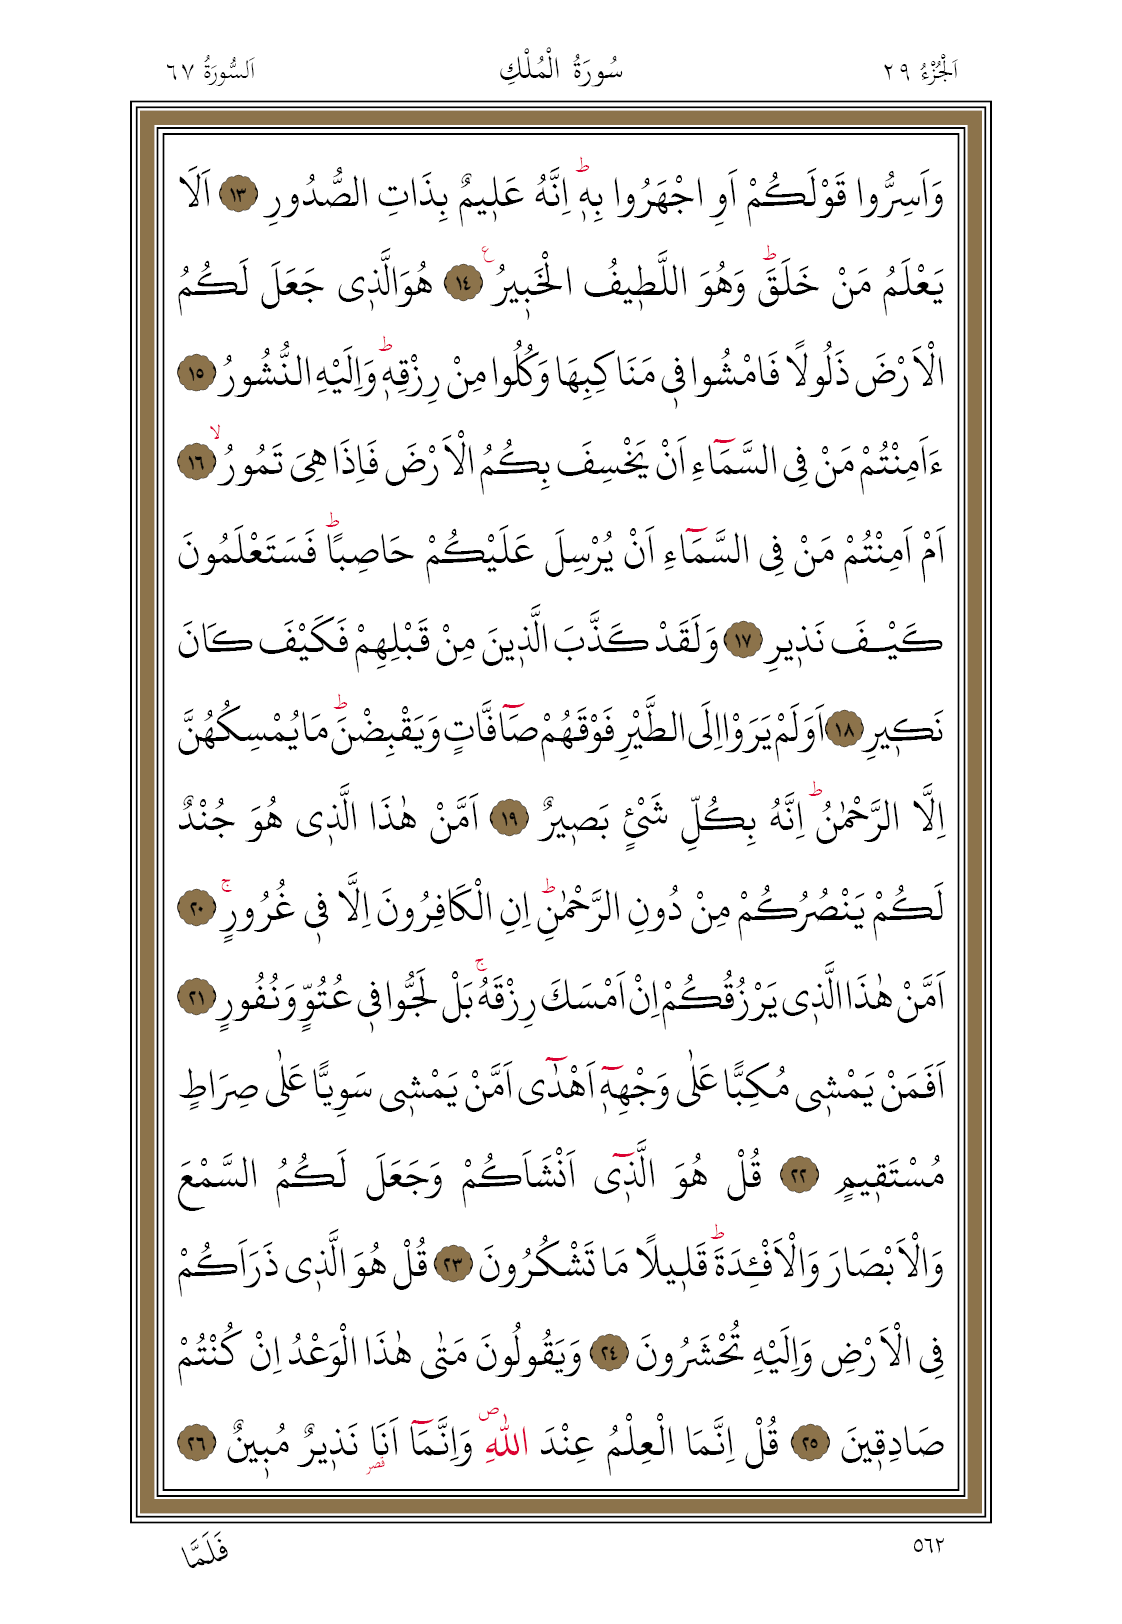 اَلْجُزْءُ ٢٩ سُورَةُ الْمُلْكِ اَلسُّورَةُ ٦٧
وَاَسِرُّوا قَوْلَكُمْ اَوِ اجْهَرُوا بِه۪ۜ اِنَّهُ عَل۪يمٌ بِذَاتِ الصُّدُورِ ﴿١٣﴾ اَلَا
يَعْلَمُ مَنْ خَلَقَۜ وَهُوَ اللَّط۪يفُ الْخَب۪يرُ۟ ﴿١٤﴾ هُوَالَّذ۪ى جَعَلَ لَكُمُ
الْاَرْضَ ذَلُولًا فَامْشُوا ف۪ى مَنَاكِبِهَا وَكُلُوا مِنْ رِزْقِه۪ۜ وَاِلَيْهِ النُّشُورُ ﴿١٥﴾
ءَاَمِنْتُمْ مَنْ فِى السَّمَٓاءِ اَنْ يَخْسِفَ بِكُمُ الْاَرْضَ فَاِذَا هِىَ تَمُورُۙ ﴿١٦﴾
اَمْ اَمِنْتُمْ مَنْ فِى السَّمَٓاءِ اَنْ يُرْسِلَ عَلَيْكُمْ حَاصِبًاۜ فَسَتَعْلَمُونَ
كَيْفَ نَذ۪يرِ ﴿١٧﴾ وَلَقَدْ كَذَّبَ الَّذ۪ينَ مِنْ قَبْلِهِمْ فَكَيْفَ كَانَ
نَك۪يرِ ﴿١٨﴾ اَوَلَمْ يَرَوْا اِلَى الطَّيْرِ فَوْقَهُمْ صَٓافَّاتٍ وَيَقْبِضْنَۜ مَا يُمْسِكُهُنَّ
اِلَّا الرَّحْمٰنُۜ اِنَّهُ بِكُلِّ شَىْءٍ بَص۪يرٌ ﴿١٩﴾ اَمَّنْ هٰذَا الَّذ۪ى هُوَ جُنْدٌ
لَكُمْ يَنْصُرُكُمْ مِنْ دُونِ الرَّحْمٰنِۜ اِنِ الْكَافِرُونَ اِلَّا ف۪ى غُرُورٍۚ ﴿٢٠﴾
اَمَّنْ هٰذَا الَّذ۪ى يَرْزُقُكُمْ اِنْ اَمْسَكَ رِزْقَهُۚ بَلْ لَجُّوا ف۪ى عُتُوٍّ وَنُفُورٍ ﴿٢١﴾
اَفَمَنْ يَمْش۪ى مُكِبًّا عَلٰى وَجْهِه۪ٓ اَهْدٰٓى اَمَّنْ يَمْش۪ى سَوِيًّا عَلٰى صِرَاطٍ
مُسْتَق۪يمٍ ﴿٢٢﴾ قُلْ هُوَ الَّذ۪ٓى اَنْشَاَكُمْ وَجَعَلَ لَكُمُ السَّمْعَ
وَالْاَبْصَارَ وَالْاَفْـِٔدَةَۜ قَل۪يلًا مَا تَشْكُرُونَ ﴿٢٣﴾ قُلْ هُوَ الَّذ۪ى ذَرَاَكُمْ
فِى الْاَرْضِ وَاِلَيْهِ تُحْشَرُونَ ﴿٢٤﴾ وَيَقُولُونَ مَتٰى هٰذَا الْوَعْدُ اِنْ كُنْتُمْ
صَادِق۪ينَ ﴿٢٥﴾ قُلْ اِنَّمَا الْعِلْمُ عِنْدَ اللّٰهِۖ وَاِنَّمَٓا اَنَا۬ نَذ۪يرٌ مُب۪ينٌ ﴿٢٦﴾
٥٦٢ فَلَمَّا